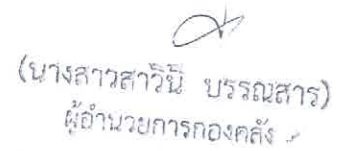 (นางสาวสาวินี บรรณสาร)
ผู้อำนวยการกองคลัง